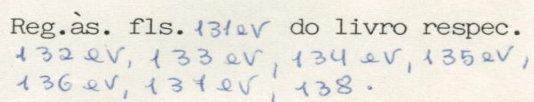 Reg.às. fls. 131ev do livro respec.
132 ev, 133 ev, 134 ev, 135 ev,
136 ev, 137 ev, 138.